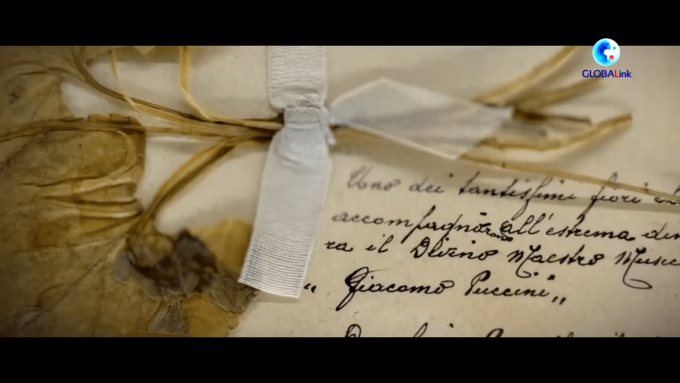 GLOBALink
Uno dei tantissimi fiori
accompagnarono all'estrema
ra il Divino Maestro
„ Giacomo Puccini „